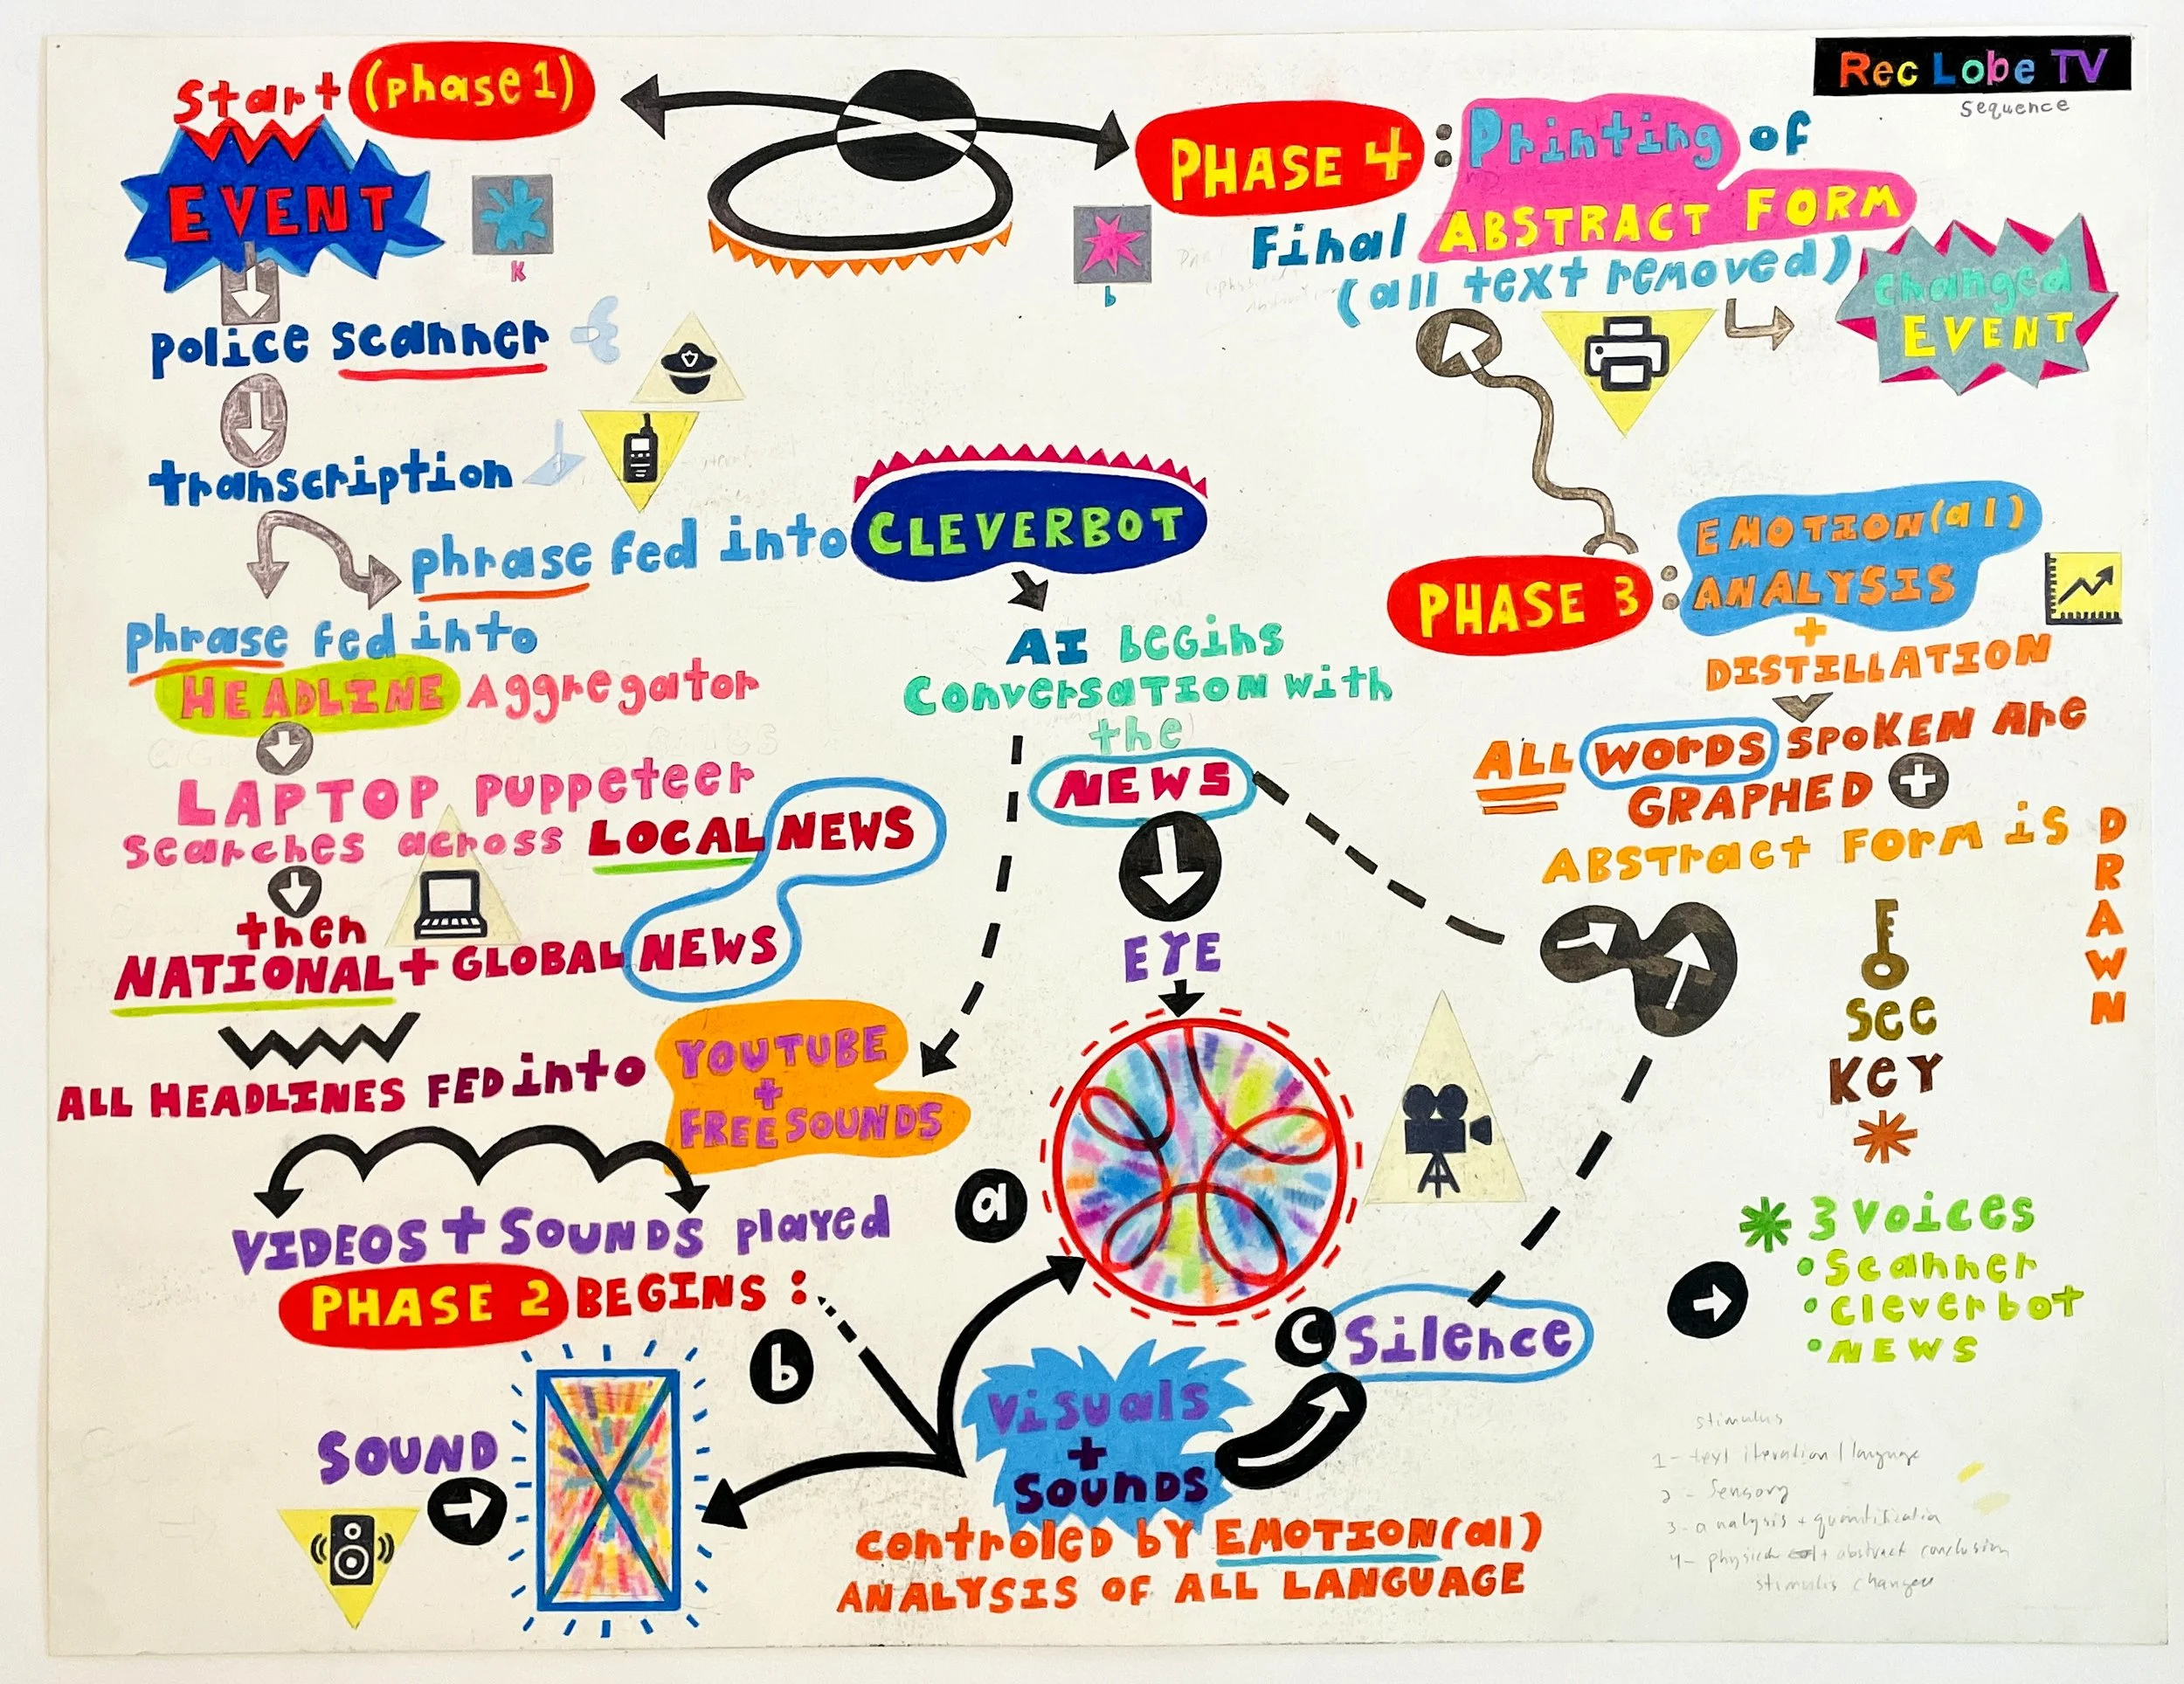 Rec Lobe TV
sequence
Start (phase 1)
EVENT
K
police scanner
transcription
phrase fed into CLEVERBOT
phrase fed into
HEADLINE Aggregator
LAPTOP puppeteer
searches across LOCAL NEWS
then
NATIONAL + GLOBAL NEWS
ALL HEADLINES FED into YOUTUBE
+
FREESOUNDS
VIDEOS + SOUNDS played
PHASE 2 BEGINS :
b
SOUND
AI begins
Conversation with
the
NEWS
EYE
a
Visuals
+
Sounds
C Silence
controled by EMOTION(al)
ANALYSIS OF ALL LANGUAGE
PHASE 4 : Printing of
Final ABSTRACT FORM
(all text removed)
b
changed
EVENT
PHASE 3 : EMOTION(al)
ANALYSIS
+
DISTILLATION
ALL WORDS SPOKEN Are
GRAPHED +
ABSTract Form is DRAWN
see
Key
*
* 3 voices
• Scanner
• cleverbot
• NEWS
stimulus
1 - text iteration / language
2 - Sensory
3 - analysis + quantification
4 - physical + abstract conclusion
stimulus changed